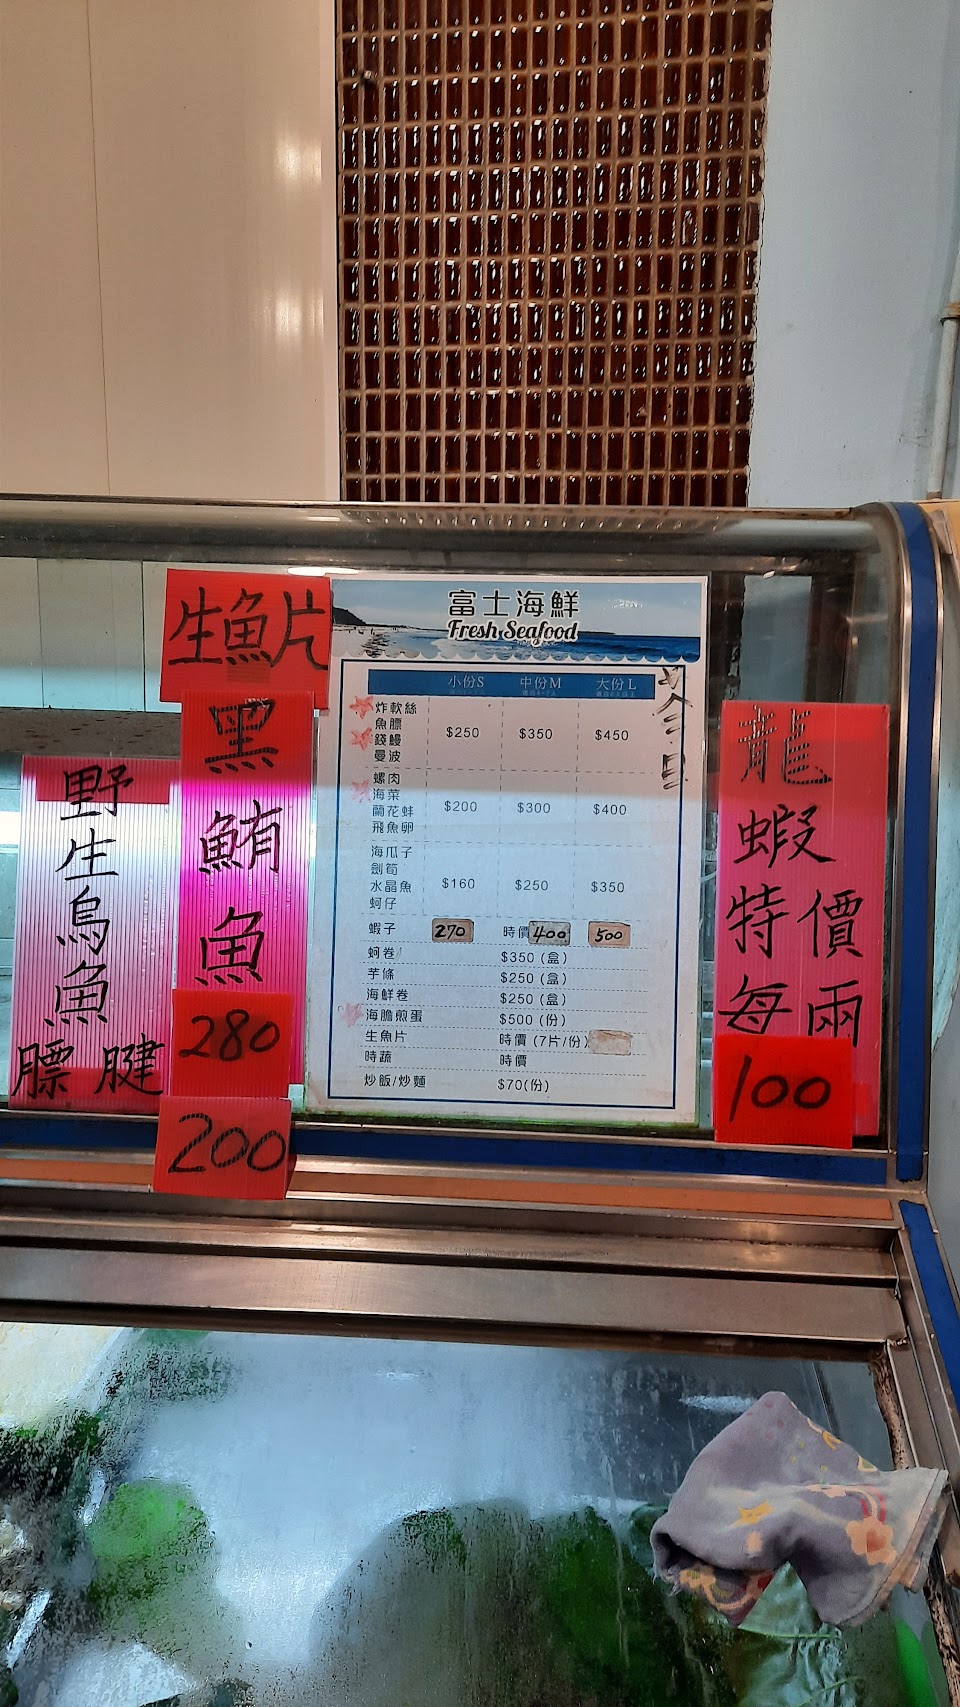 生魚片
黑
鮪
魚
280
200
野
生
烏
魚
膘 腱
富士海鮮
Fresh Seafood
小份S 中份M 大份L
炸軟絲
魚膘
錢鰻
曼波
$250 $350 $450
螺肉
海菜
蘭花蚌
飛魚卵
$200 $300 $400
海瓜子
劍筍
水晶魚
蚵仔
$160 $250 $350
蝦子 270 時價 400 500
蚵卷 $350 (盒)
芋條 $250 (盒)
海鮮卷 $250 (盒)
海膽煎蛋 $500 (份)
生魚片 時價 (7片/份)
時蔬 時價
炒飯/炒麵 $70(份)
龍
蝦
特價
每兩
100